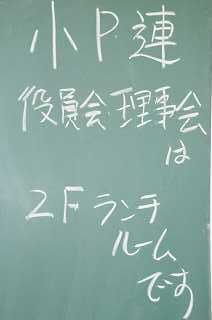 小P連
役員会・理事会
は
2Fランチ
ルーム
です